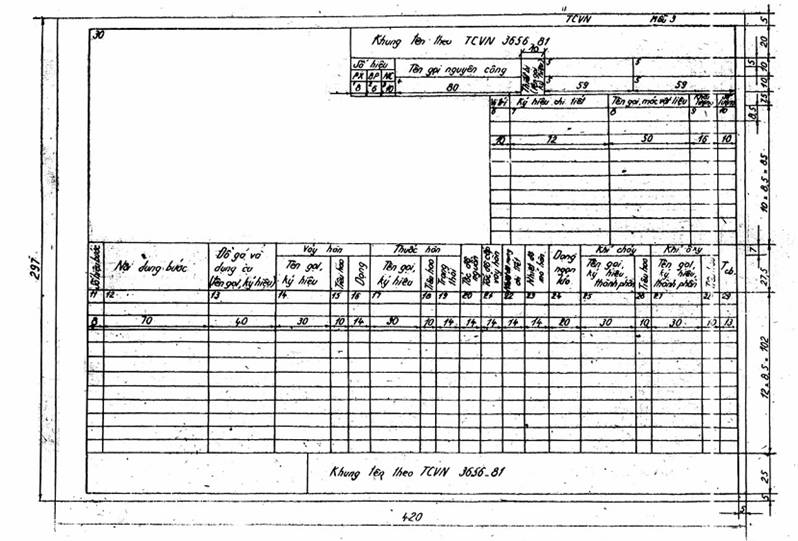 TCVN Mẫu 3
5
30
Khung tên theo TCVN 3656_81
20
10
Số hiệu
PX BP NC
Tên gọi nguyên công
Thiết bị
5 5
10
8 6 10
4 80
5 59
5 59
10
7,5
8,5
6 7 Ký hiệu chi tiết
8 Tên gọi, mác vật liệu
9 10
10 72 50 16 10
10 x 8,5 = 85
297
Số hiệu bước
Nội dung bước
Đồ gá và dụng cụ (tên gọi, ký hiệu)
Vảy hàn
Thuốc hàn
Khí cháy
Khí ôxy
Tên gọi, ký hiệu
Tiêu hao
Dạng
Tên gọi, ký hiệu
Tiêu hao
Trạng thái
Dạng ngọn lửa
Tên gọi, ký hiệu thành phần
Tiêu hao
Tên gọi, ký hiệu thành phần
T cb.
7
27,5
11 12 13 14 15 16 17 18 19 20 21 22 23 24 25 26 27 28 29
8 70 40 30 10 14 30 10 14 14 14 14 14 20 30 10 30 10 13
12 x 8,5 = 102
Khung tên theo TCVN 3656_81
25
5
420
5